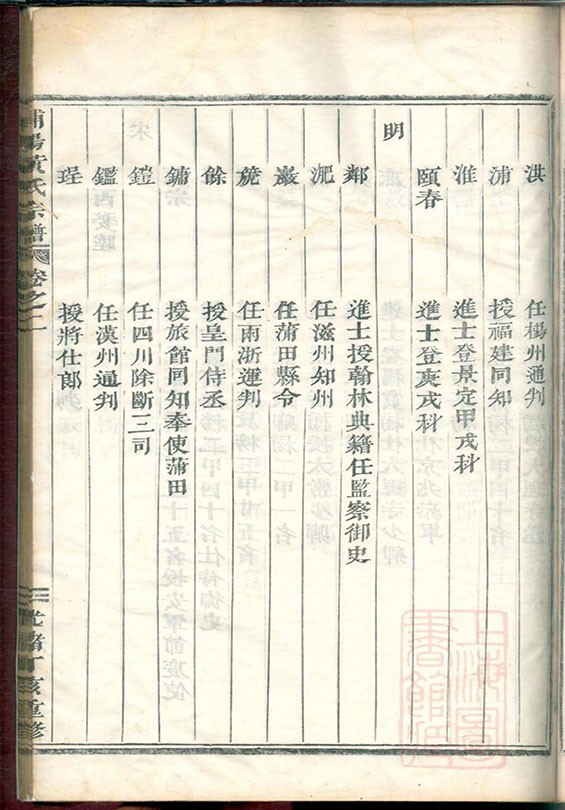 洪 任楊州通判
浦 授福建同知
淮 進士登景定甲戌科
明
頤春 進士登庚戌科
鄰 進士授翰林典籍任監察御史
淝 任滋州知州
巖 任蒲田縣令
任兩浙運判
餘 授皇門侍丞
鏞 授旅館同知奉使蒲田
鎧 任四川除斷三司
鑑 任漢州通判
珵 授將仕郎
莆陽黃氏宗譜 卷之二 二 光緒丁亥重修
上海圖書館藏